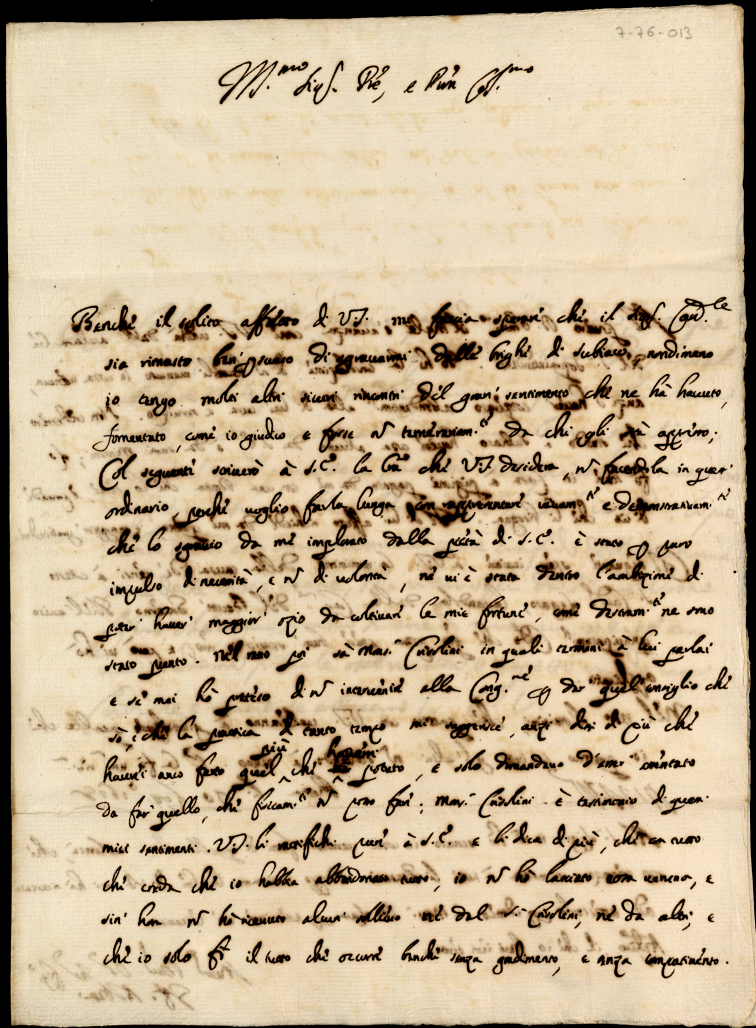 7-76-013
Ill.mo Sig.r P.ne, e Pron Col.mo
Benche il solito affetto di V.S. mi faccia sperare che il Sig.r Card.le
sia rimasto ben di sgravarmi delle brighe di Subiaco, nondimeno
io tengo molti altri sicuri rincontri del gran sentimento che ne hà havuto,
fomentato, come io giudico e forse nõ temerariam.te da chi gli stà appresso;
Col seguente scriverò à S.E. la che V.S. desidera, nõ facendola in quest'
ordinario, perche voglio farla lunga con rappresentare vivam.te e demonstrativam.te
che lo sgravio da me implorato dalla pietà di S.E. è stato puro
impulso di necessità, e nõ di volontà, ne vi è stata dentro l'ambizione di
poter haver maggior ozio da coltivare le mie fortune, come ne sono
stato punto. Nel resto poi sà Mons.r Casolini in quali termini à lui parlai
e se mai hò preteso di nõ intervenire alla Cong.ne dar quel consiglio che
sò, e che la pratica di tanto tempo mi suggerisce, anzi dissi di più che
haverei anco fatto quel più che potuto, e solo dimandavo d'esser
da far quello, che fisicam.te nõ posso fare; Mons.r Casolini è testimonio di questi
miei sentimenti. V.S. li pure à S.E. e li dica di più, che con tutto
che creda che io habbia abbandonato tutto, io nõ hò lasciato cosa veruna, e
sin' hora nõ hò ricevuto alcun sollievo ne dal S.r Casolini, ne da altri, e
che io solo fò il tutto che occorre benche senza gradimento, e senza compatimento.